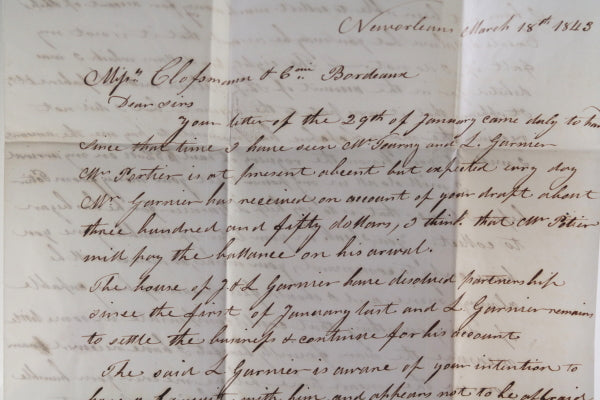 Neworleans March 18th 1843
Miss.rs Clossmann & Com.ie Bordeaux
Dear Sirs
Your letter of the 29th of January came duly to
since that time I have seen Mr Tourny and L. Garnier
Mr Portier is at present abcent but expected evry day
Mr Garnier has received on account of your draft about
three hundred and fifty dollars, I think that Mr
will pay the ballance on his arival.
The house of J & L Garnier have disolved partnership
since the first of January last and L Garnier remains
to settle the business & continue for his account
The said L Garnier is aware of your intention to
have a lawsuit with him and appears not to be affraid